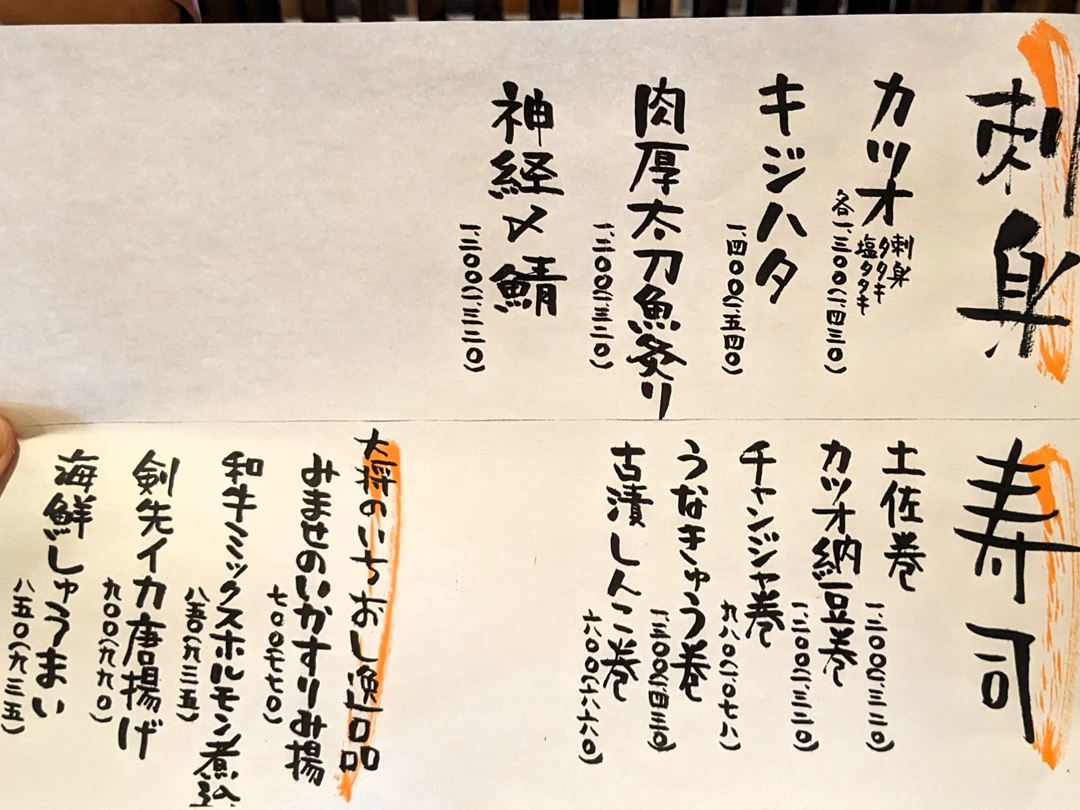 刺身
カツオ
刺身
タタキ
塩タタキ
各一、三〇〇(一、四三〇)
キジハタ
一、四〇〇(一、五四〇)
肉厚太刀魚炙り
一、二〇〇(一、三二〇)
神経〆鯖
一、二〇〇(一、三二〇)
寿司
土佐巻
一、二〇〇(一、三二〇)
カツオ納豆巻
一、二〇〇(一、三二〇)
チャンジャ巻
九八〇(一、〇七八)
うなきゅう巻
一、三〇〇(一、四三〇)
古漬しんこ巻
六〇〇(六六〇)
大将のいちおし逸品
みませのいかすりみ揚
七〇〇(七七〇)
和牛ミックスホルモン煮込
八五〇(九三五)
剣先イカ唐揚げ
九〇〇(九九〇)
海鮮しゅうまい
八五〇(九三五)